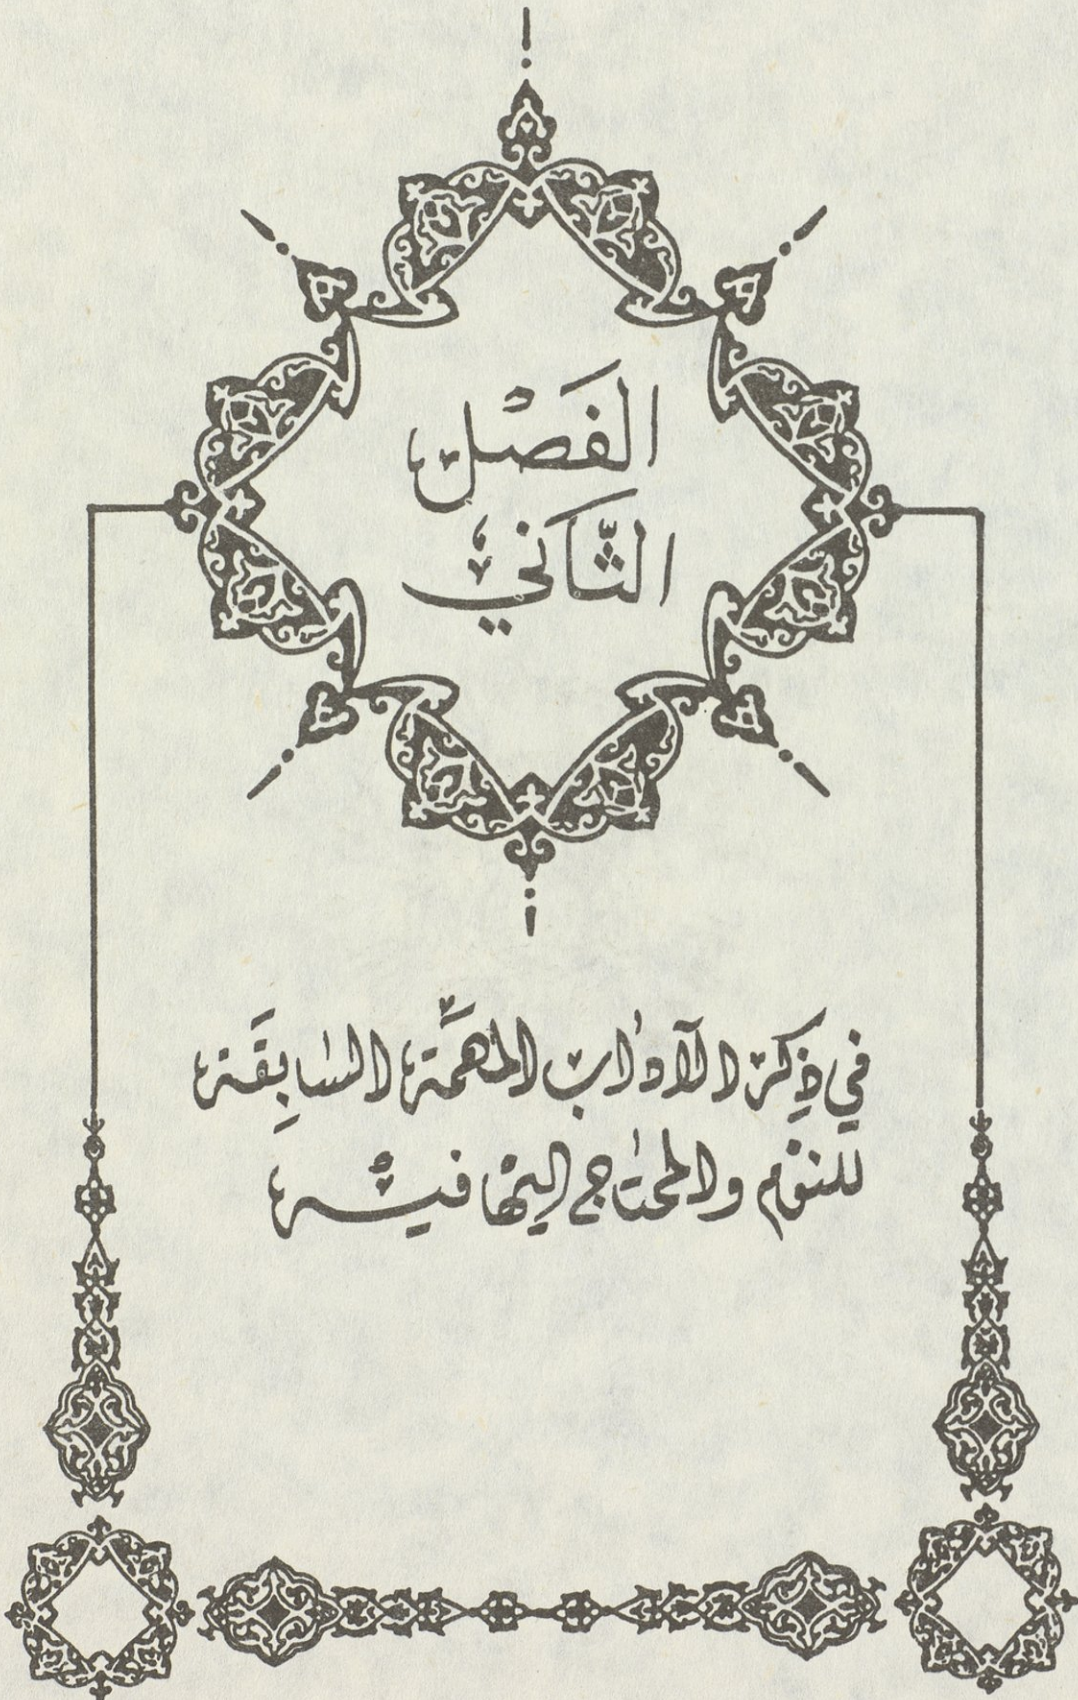 الفَصْل
الثَّاني
في ذِكر الآداب المهمَّة السابِقَة
للنوْم والمحتاج اليْها فيْه